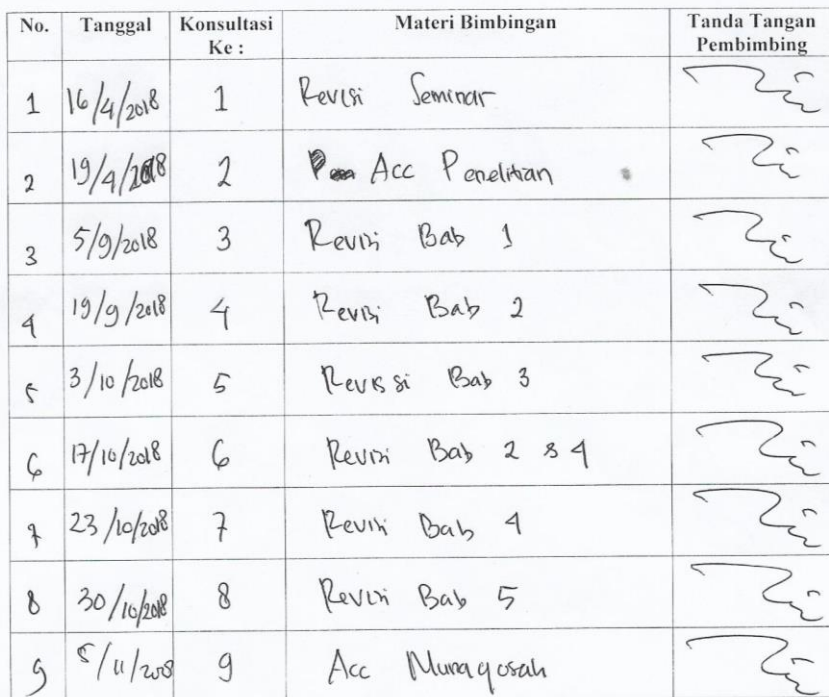 No. Tanggal Konsultasi Ke : Materi Bimbingan Tanda Tangan Pembimbing
1 16/4/2018 1 Revisi Seminar
2 19/4/2018 2 Acc Penelitian
3 5/9/2018 3 Revisi Bab 1
4 19/9/2018 4 Revisi Bab 2
5 3/10/2018 5 Revissi Bab 3
6 17/10/2018 6 Revisi Bab 2 & 4
7 23/10/2018 7 Revisi Bab 4
8 30/10/2018 8 Revisi Bab 5
9 5/11/2018 9 Acc Munaqosah